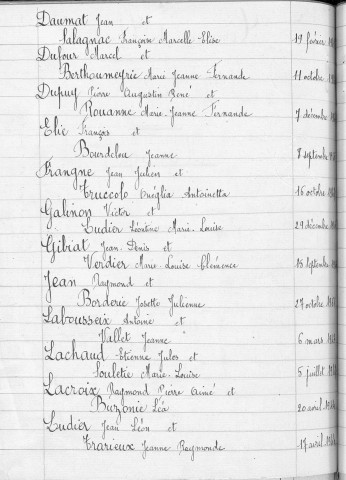 Daumat Jean et
Salagnac Françoise Marcelle Elise 19 février
Dufour Marcel et
Berthoumeyrie Marie Jeanne Fernande 11 octobre
Dupuy Pierre Augustin René et
Rouanne Marie-Jeanne Fernande 7 décembre
Elie François et
Bourdelou Jeanne 8 septembre
Frangne Jean Julien et
Truccolo Antoinetta 16 octobre
Galinon Victor et
Ludier Léontine Marie-Louise 29 décembre
Gibiat Jean-Denis et
Verdier Marie-Louise Clémence 15 septembre
Jean Raymond et
Borderie Josette Julienne 27 octobre
Labousseix Antoine et
Vallet Jeanne 6 mars
Lachaud Etienne Jules et
Souletie Marie-Louise 5 juillet
Lacroix Raymond Pierre Aimé et
Buzonie Léa 20 avril
Ludier Jean Léon et
Trarieux Jeanne Raymonde 17 avril